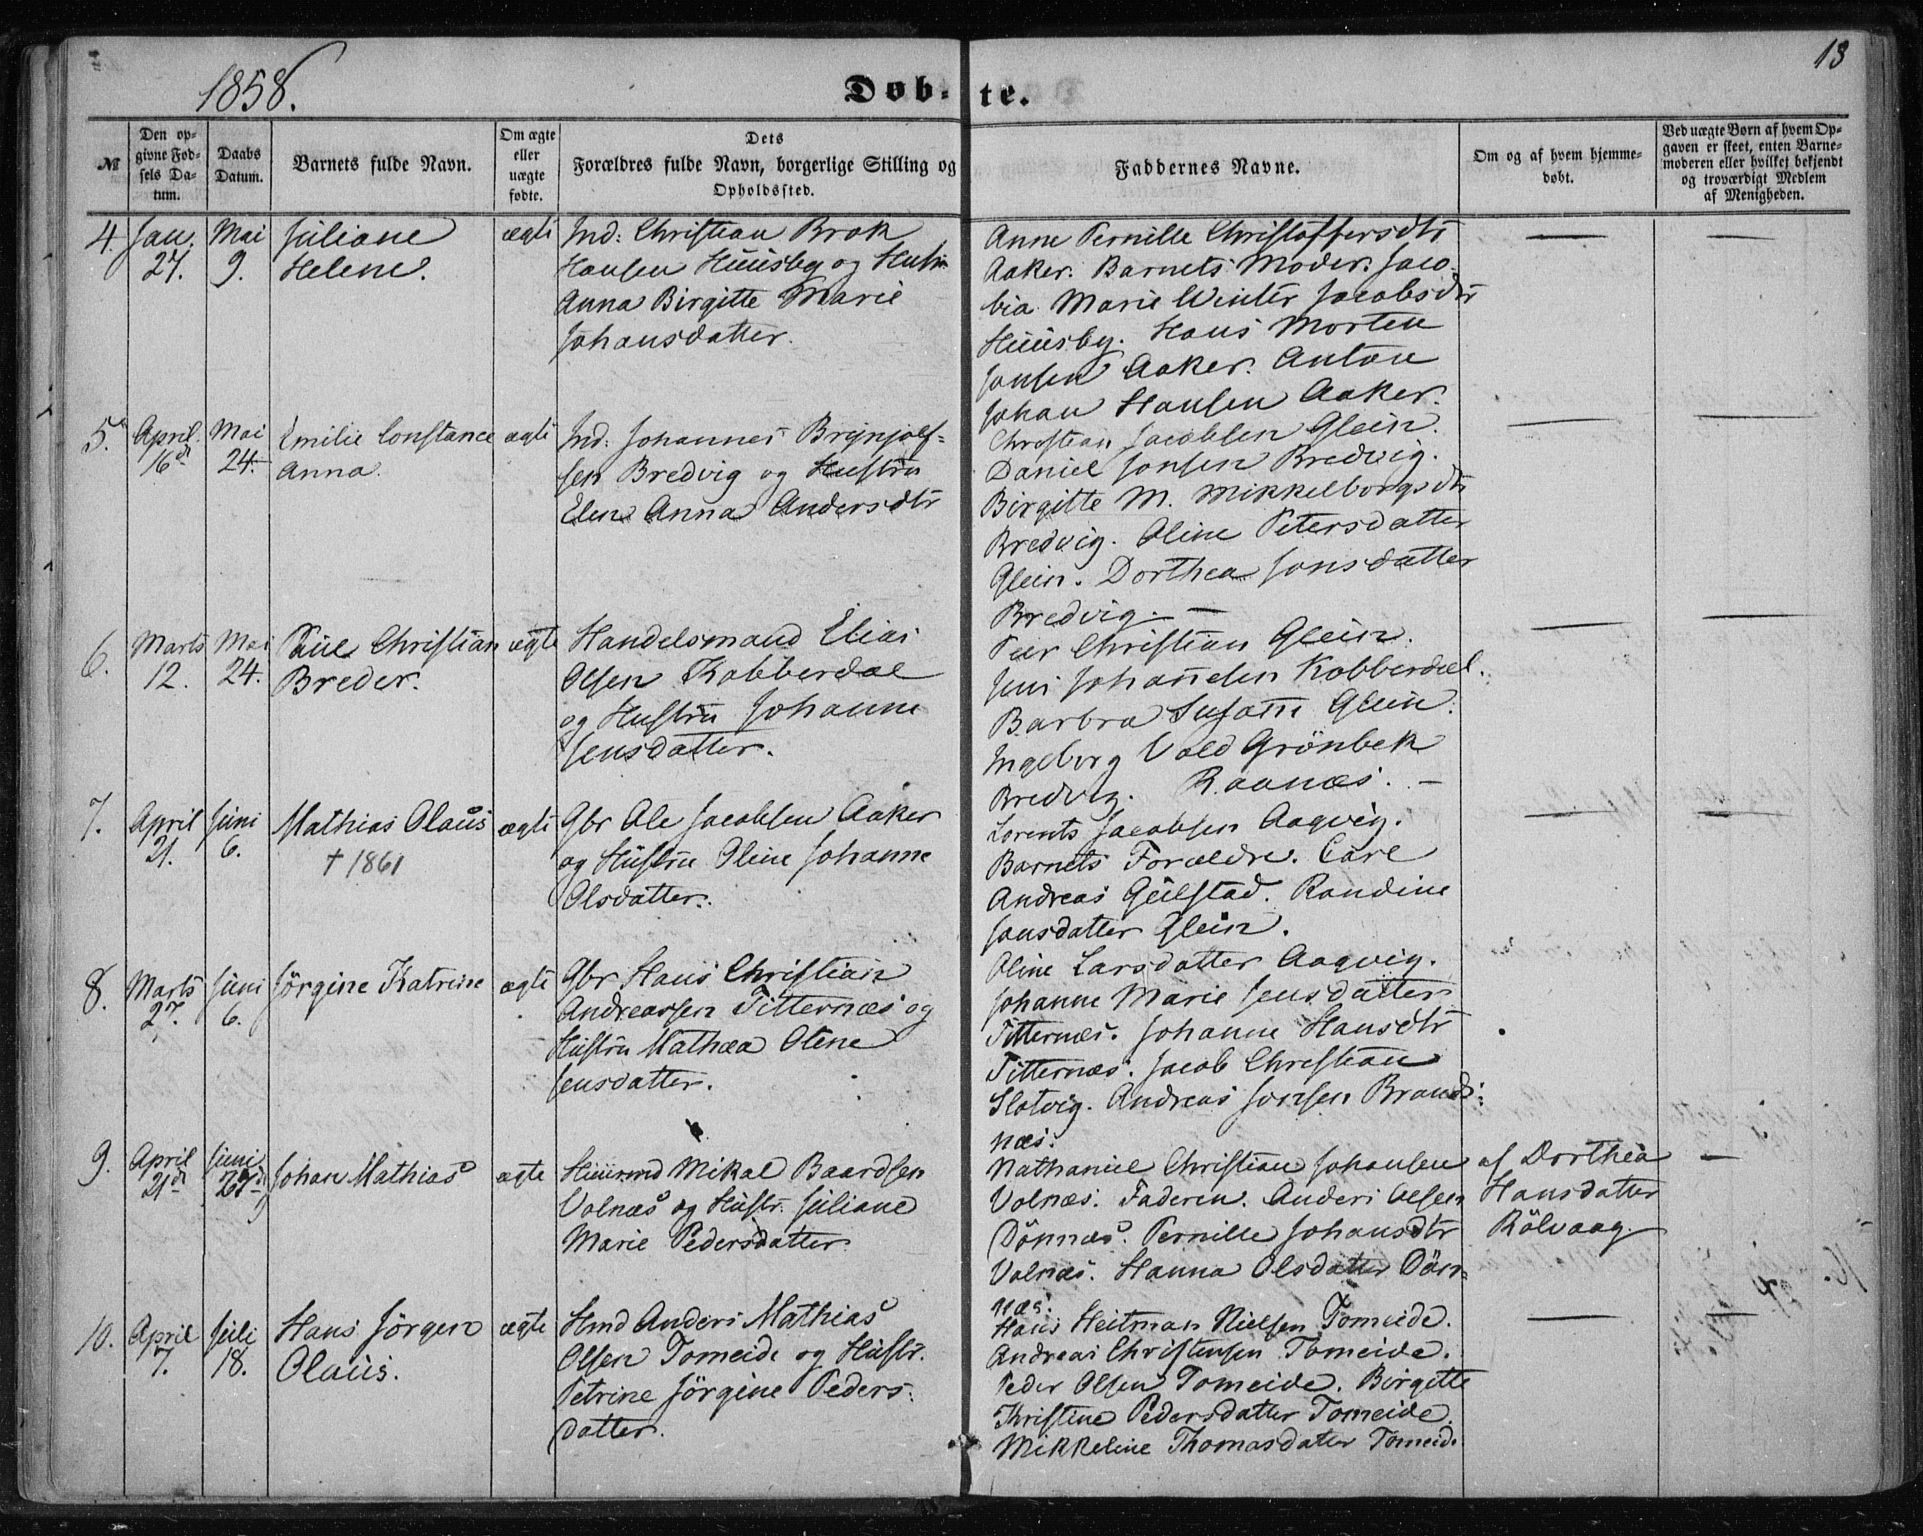 1858.
Døb-te.
13
№
Den op-
givne Fød-
sels Da-
tum.
Daabs
Datum.
Barnets fulde Navn.
Om ægte
eller
uægte
fødte.
Dets
Forældres fulde Navn, borgerlige Stilling og
Opholdssted.
Faddernes Navne.
Om og af hvem hjemme-
døbt.
Ved uægte Børn af hvem Op-
gaven er skeet, enten Barne-
moderen eller hvilket bekjendt
og troværdigt Medlem
af Menigheden.
4.
Jan.
27.
Mai
9.
Juliane
Helene.
ægte
Ind: Christian Brok
Hansen Huusby og Hustru
Anna Birgitte Marie
Johansdatter.
Anne Pernille Christoffersdtr
Aaker. Barnets Moder. Jaco-
bia Marie Winter Jacobsdtr
Huusby. Hans Morten
Jonsen Aaker. Anton
Johan Hansen Aaker.
5.
April
16d
Mai
24.
Emilie Constance
Anna
ægte
Ind: Johannes Brynjolf-
sen Bredvig og Hustru
Elen Anna Andersdtr
Christian Jacobsen Glein.
Daniel Jonsen Bredvig.
Birgitte M. Mikkelborgsdtr
Bredvig. Oline Petersdatter
Glein. Dorthea Jonsdatter
Bredvig. —
6.
Marts
12.
Mai
24.
Paul Christian
Breder.
ægte
Handelsmand Elias
Olsen Kobberdal
og Hustru Johanne
Jensdatter.
Peer Christian Glein.
Jens Johannesen Kobberdal.
Barbra Susann Glein.
Ingeborg Vold Grönbek
Bredvig. Raanæs. —
7.
April
21.
Juni
6.
Mathias Olaus
† 1861
ægte
Gbr Ole Jacobsen Aaker
og Hustru Oline Johanne
Olsdatter.
Lorents Jacobsen Aagvig.
Barnets Forældre. Carl
Andreas Geilstad. Randine
Jonsdatter Glein.
Oline Larsdatter Aagvig.
8.
Marts
27.
Juni
6.
Jörgine Katrine
ægte
Gbr Hans Christian
Andreassen Titternæs og
Hustru Mathea Olene
Jensdatter.
Johanne Marie Jensdatter
Titternæs. Johanne Hansdtr
Titternæs. Jacob Christian
Slotvig. Andreas Jonsen Brand-
næs.
9.
April
21d
Juni
27d
Johan Mathias
ægte
Huusmd Mikal Baardsen
Volnæs og Hustr. Juliane
Marie Pedersdatter
Nathaniel Christian Johansen
Volnæs. Faderen. Anders Olsen
Dönnæs. Pernille Johansdtr
Volnæs. Hanna Olsdatter Dön-
næs.
af Dorthea
Hansdatter
Rölvaag.
10.
April
7.
Juli
18.
Hans Jörgen
Olaus.
ægte
Hmd Anders Mathias
Olsen Tomeide og Hustr.
Petrine Jörgine Peders-
datter.
Hans Heitman Nielsen Tomeide.
Andreas Christensen Tomeide.
Peder Olsen Tomeide. Birgitte
Christine Pedersdatter Tomeide.
Mikkeline Thomasdatter Tomeide